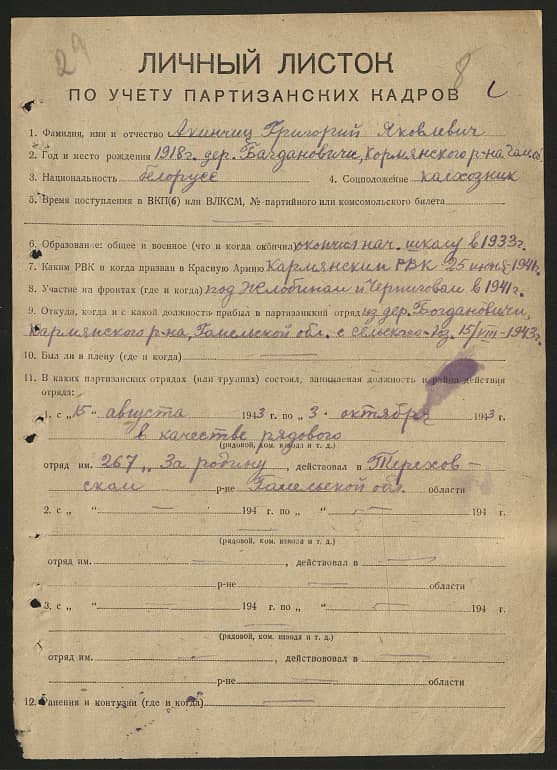 29
8
ЛИЧНЫЙ ЛИСТОК
ПО УЧЕТУ ПАРТИЗАНСКИХ КАДРОВ
1. Фамилия, имя и отчество Акинчиц Григорий Яковлевич
2. Год и место рождения 1918 г. дер. Багдановичи, Кормянского р-на
3. Национальность белорусс 4. Соцположение калхозник
5. Время поступления в ВКП(б) или ВЛКСМ, № партийного или комсомольского билета
6. Образование: общее и военное (что и когда окончил) окончил нач. школу в 1933г.
7. Каким РВК и когда призван в Красную Армию Кармянским РВК 25 июня 1941г.
8. Участие на фронтах (где и когда) под Жлобином и Черниговам в 1941г.
9. Откуда, когда и с какой должности прибыл в партизанский отряд из дер. Богдановичи,
Кармянского р-на, Гамельской обл. с 15/VIII-1943г.
10. Был ли в плену (где и когда) —
11. В каких партизанских отрядах (или группах) состоял, занимаемая должность и район действия
отряда:
1. с „15" августа 1943 г. по „3" октября 1943 г.
в качестве рядового
(рядовой, ком. взвода и т. д.)
отряд им. 267 „За родину", действовал в Терехов-
ском р-не Гамельской обл. области
2. с „ — " — 194 г. по „ — " — 194 г.
—
(рядовой, ком. взвода и т. д.)
отряд им. —, действовал в —
— р-не — области
3. с „ — " — 194 г. по „ — " — 194 г.
—
(рядовой, ком. взвода и т. д.)
отряд им. —, действовал в —
— р-не — области
12. Ранения и контузии (где и когда) —